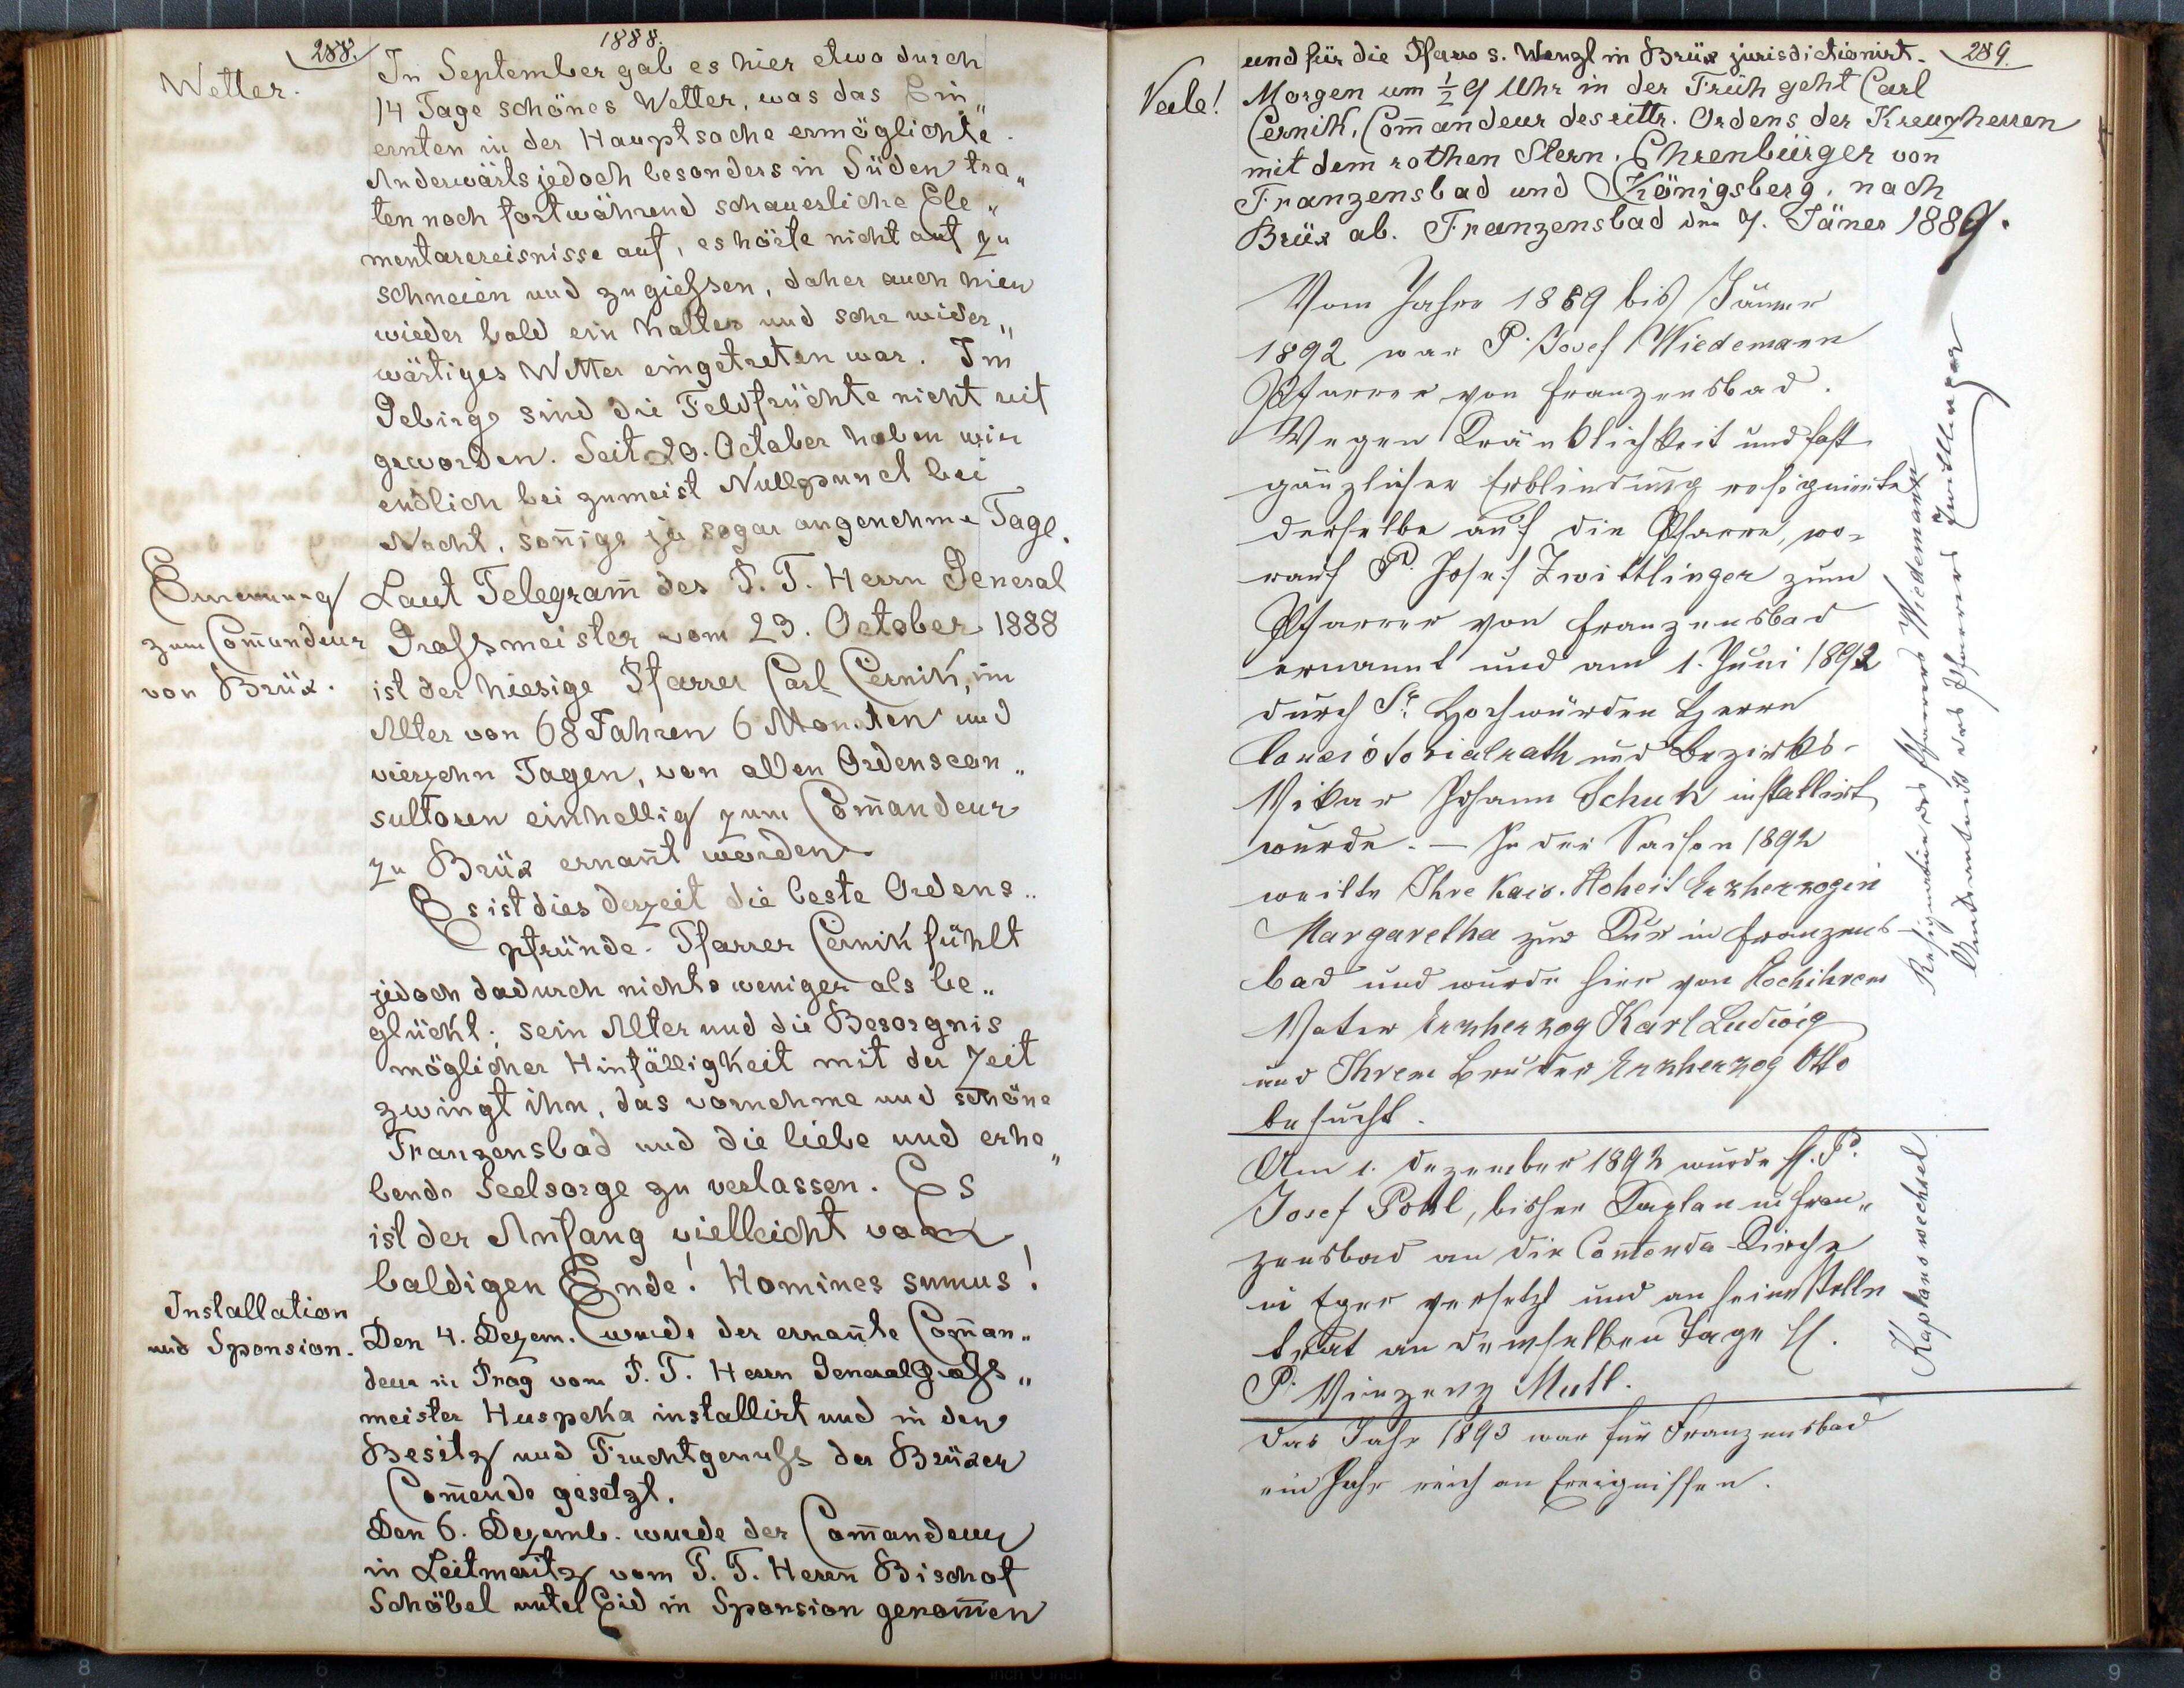 288.
1888.
Wetter.
In September gab es hier etwa durch
14 Tage schönes Wetter, was das Ein„
ernten in der Hauptsache ermöglichte.
Anderwärts jedoch besonders in Süden tra„
ten noch fortwährend schauerliche Ele„
mentarereisnisse auf, es hörte nicht auf zu
schneien und zu giehsen, daher auch hier
wieder bald ein kaltes und sehr wider„
wärtiges Wetter eingetreten war. Im
Gebirge sind die Feldfrüchte nicht reif
geworden. Seit 20. October haben wir
endlich bei zumeist Nullpunct bei
Nacht, soñige ja sogar angenehme Tage.
Ernennung
zum Com̄andeur
von Brüx.
Laut Telegram̄ des P. T. Herrn General
Grohsmeister vom 23. October 1888
ist der hiesige Pfarrer Carl Cernik, im
Alter von 68 Jahren 6 Monaten und
vierzehn Tagen, von allen Ordenscon„
sultoren einhellig zum Com̄andeur
zu Brüx ernañt worden.
Es ist dies derzeit die beste Ordens„
pfründe. Pfarrer Cernik fühlt
jedoch dadurch nichts weniger als be„
glückt; sein Alter und die Besorgnis
möglicher Hinfälligkeit mit der Zeit
zwingt ihn, das vornehme und schöne
Franzensbad und die liebe und erhe„
bende Seelsorge zu verlassen. Es
ist der Anfang vielleicht vom
baldigen Ende! Homines sumus!
Installation
und Sponsion.
Den 4. Dezem. wurde der ernañte Com̄an„
deur in Prag vom P. T. Herrn Generalgrohs„
meister Huspeka installirt und in den
Besitz und Fruchtgenuhs der Brüxer
Com̄ende gesetzt.
Den 6. Dezemb. wurde der Com̄andeur
in Leitmeritz vom P. T. Herrn Bischof
Schöbel unter Eid in Sponsion genom̄en
289.
und für die Pfarre s. Wenzl in Brüx jurisdictionirt.
Vale!
Morgen um ½ 9 Uhr in der Früh geht Carl
Cernik, Com̄andeur des rittr. Ordens der Kreuzherren
mit dem rothen Stern, Ehrenbürger von
Franzensbad und Königsberg, nach
Brüx ab. Franzensbad den 7. Jäner 1889.
Vom Jahre 1889 bis Jänner
1892 war P. Josef Wiedemann
Pfarrer von Franzensbad.
Wegen Kränklichkeit und fast
gänzlicher Erblindung resignierte
derselbe auf die Pfarre, wo-
rauf P. Josef Zwittlinger zum
Pfarrer von Franzensbad
ernannt und am 1. Juni 1892
durch Sr. Hochwürden Herrn
Consistorialrath und Bezirks-
Vikar Johann Schuk installirt
wurde. — In der Saison 1892
weilte Ihre Kais. Hoheit Erzherzogin
Margaretha zur Kur in Franzens-
bad und wurde hier von Hochihrem
Vater Erzherzog Karl Ludwig
und Ihrem Bruder Erzherzog Otto
besucht.
Resignation des Pfarrers Wiedemann
Amtsantritt des Pfarrers Zwittlinger
Am 1. Dezember 1892 wurde H. P.
Josef Pohl, bisher Kaplan in Fran„
zensbad an die Com̄enda-Kirche
in Eger versetzt und an seine Stelle
trat an demselben Tage H.
P. Vinzenz Mutl.
Kaplanswechsel
Das Jahr 1893 war für Franzensbad
ein Jahr reich an Ereignissen.